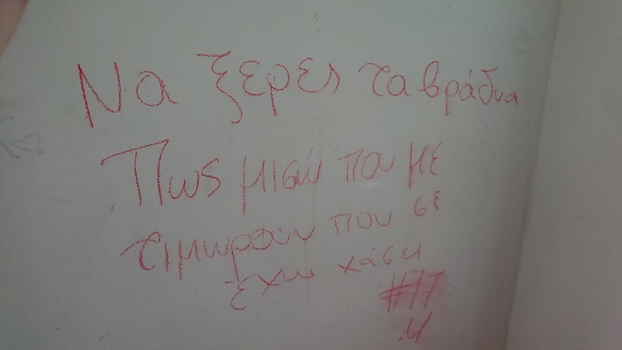 Να ξερεις τα βράδυα
Πως μισώ που με
τιμωρούν που σε
έχω χάσει
#77
Μ